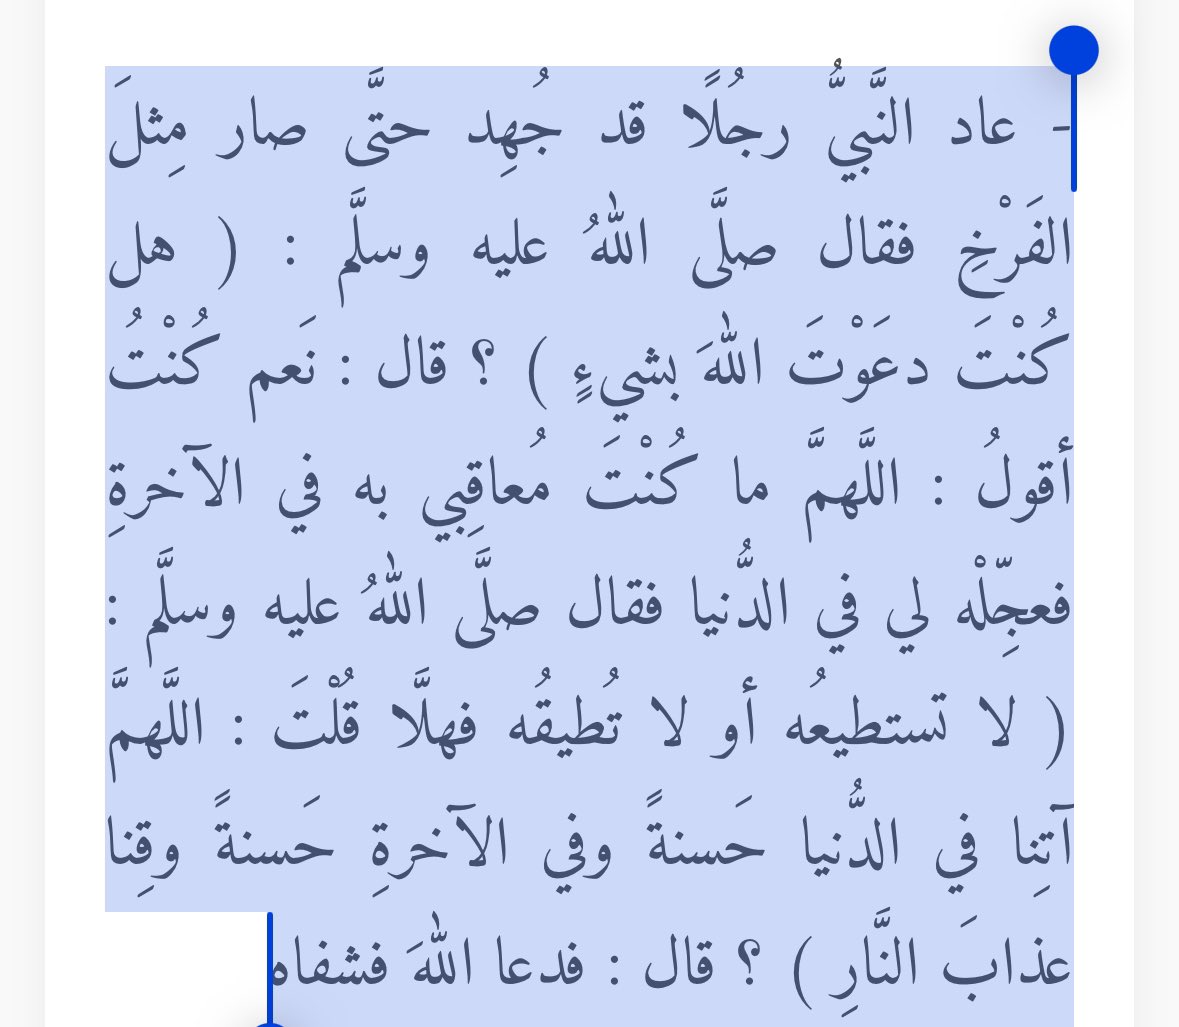 - عاد النَّبيُّ رجُلًا قد جُهِد حتَّى صار مِثلَ
الفَرْخِ فقال صلَّى اللهُ عليه وسلَّم : ( هل
كُنْتَ دعَوْتَ اللهَ بشيءٍ ) ؟ قال : نَعم كُنْتُ
أقولُ : اللَّهمَّ ما كُنْتَ مُعاقِبِي به في الآخرةِ
فعجِّلْه لي في الدُّنيا فقال صلَّى اللهُ عليه وسلَّم :
( لا تستطيعُه أو لا تُطيقُه فهلَّا قُلْتَ : اللَّهمَّ
آتِنا في الدُّنيا حَسنةً وفي الآخرةِ حَسنةً وقِنا
عذابَ النَّارِ ) ؟ قال : فدعا اللهَ فشفاه